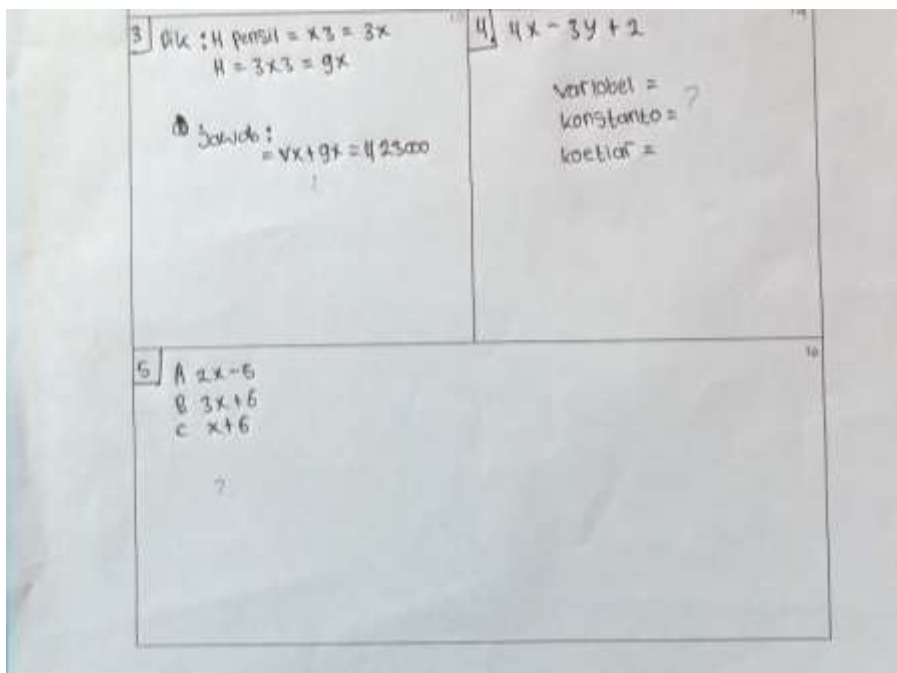 3 Dik : 4 pensil = x3 = 3x
4 = 3x3 = 9x
Jawab :
= Vx + 9x = 4 23000
?
4. 4x - 3y + 2
variabel =
konstanta = ?
koefiar =
5 A 2x - 5
B 3x + 6
C x + 6
?